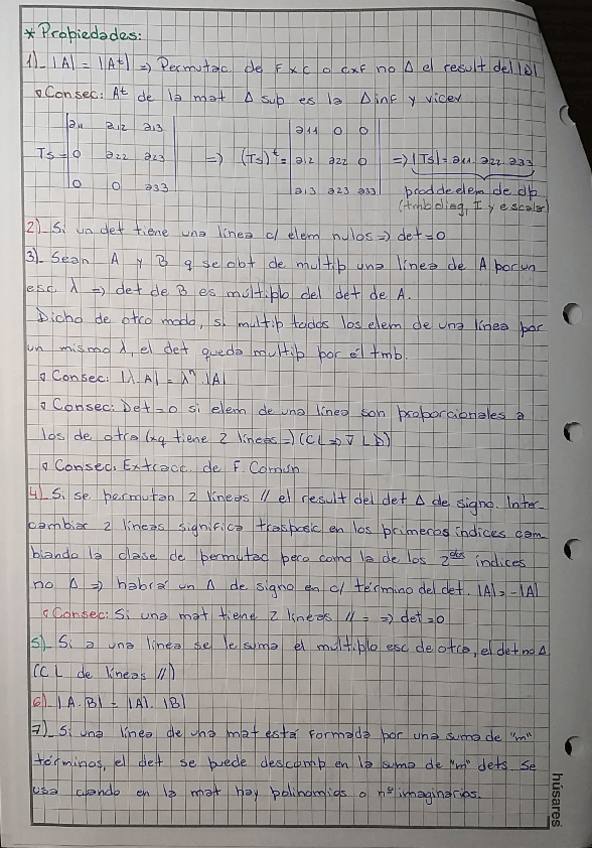 * Propiedades:
1)_ |A| = |Aᵗ| => Permutac de F x C o C x F no Δ el result del |A|
Consec: Aᵗ de la mat Δ sup es la Δ inf y vicev
a11 a12 a13 a11 0 0
Ts = 0 a22 a23 => (Ts)ᵗ = a12 a22 0 => |Ts| = a11. a22. a33
0 0 a33 a13 a23 a33 prod de elem de dp
(tmb diag, I y escalar)
2)_ Si un det tiene una línea c/ elem nulos => det = 0
3)_ Sean A y B q se obt de multip una línea de A por un
esc λ => det de B es múltiplo del det de A.
Dicho de otro modo, si multip todos los elem de una línea por
un mismo λ, el det queda multip por él tmb.
Consec: |λ.A| = λⁿ.|A|
Consec: Det = 0 si elem de una línea son proporcionales a
los de otra (xq tiene 2 líneas =) (CL => ∇ LD)
Consec: Extracc de F. Común
4)_ Si se permutan 2 líneas // el result del det Δ de signo. Inter-
cambiar 2 líneas significa trasposic en los primeros índices cam-
biando la clase de permutac pero como la de los 2dos índices
no Δ => habrá un Δ de signo en c/ término del det. |A| = -|A|
Consec: Si una mat tiene 2 líneas // = => det = 0
5)_ Si a una línea se le suma el multiplo esc de otra, el det no Δ
(CL de líneas //)
6)_ |A.B| = |A|. |B|
7)_ Si una línea de una mat está formada por una suma de "m"
términos, el det se puede descomp en la suma de "m" dets. Se
usa cuando en la mat hay polinomios o nº imaginarios.
húsares